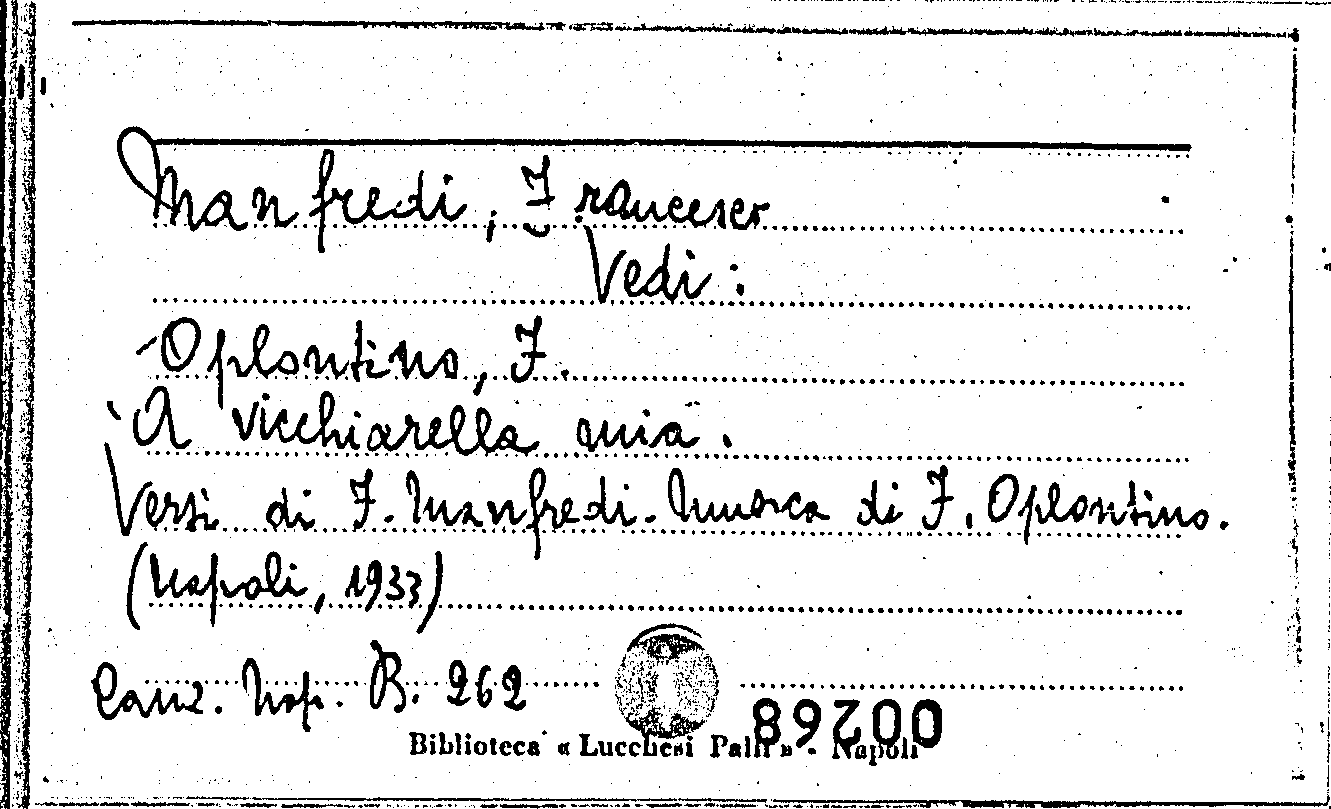 Manfredi, Francesco
Vedi:
Oplontino, F.
'A vicchiarella mia.
Versi di F. Manfredi. Musica di F. Oplontino.
(Napoli, 1933)
Canz. Nap. B. 262
00268
Biblioteca « Lucchesi Palli » - Napoli